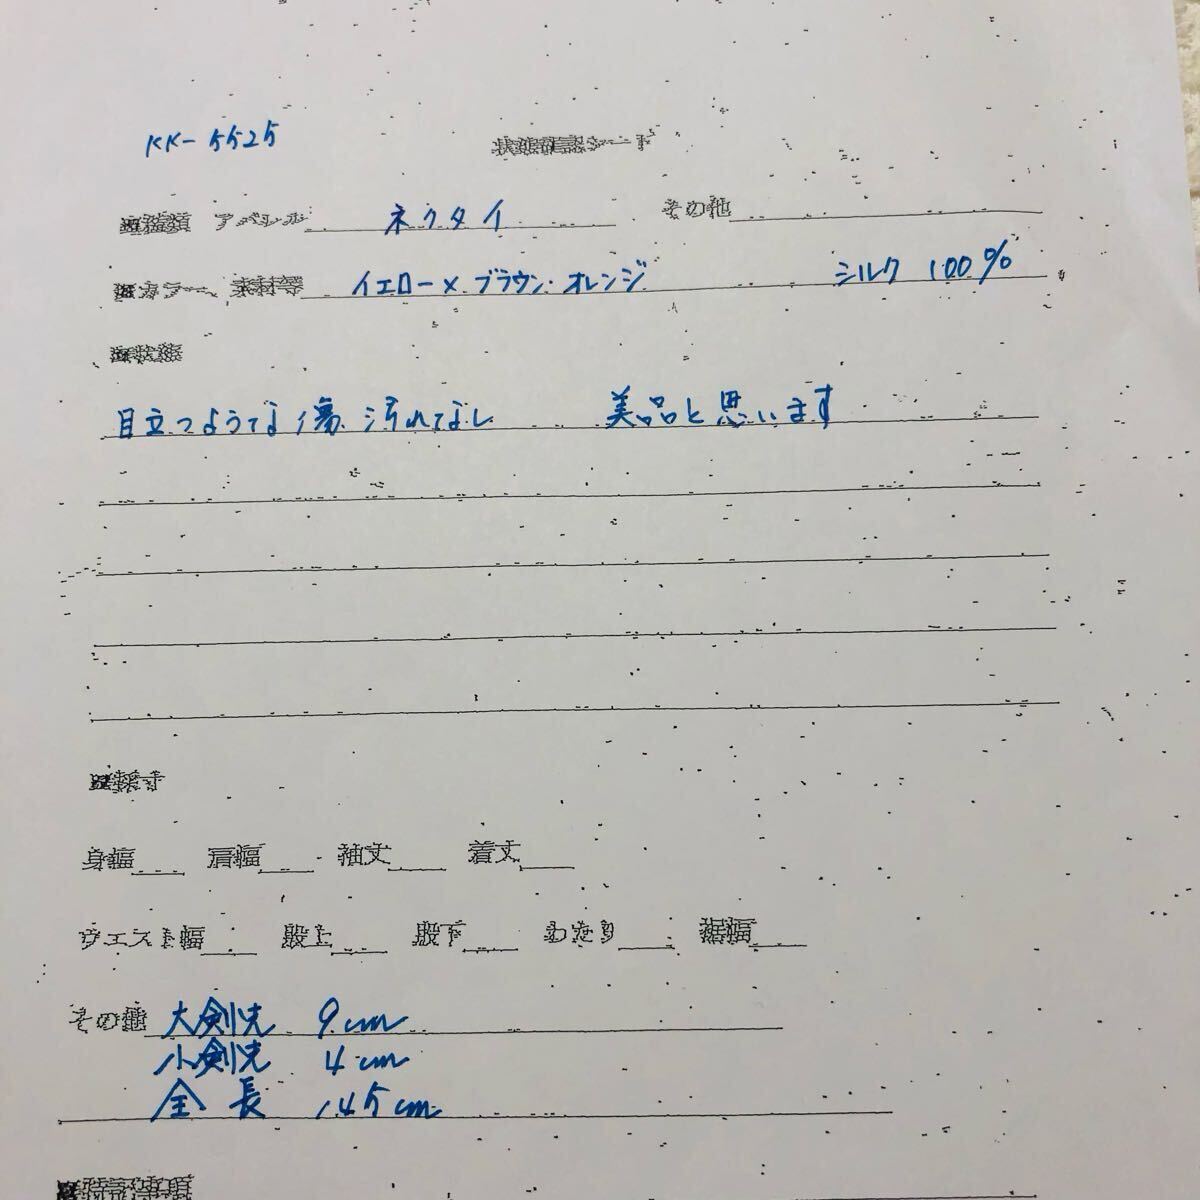 KK-5525
状態確認シート
■種類 アパレル ネクタイ その他
■カラー、素材等 イエロー×ブラウン・オレンジ シルク 100%
■状態
目立つような傷 汚れなし 美品と思います
■採寸
身幅 肩幅 袖丈 着丈
ウエスト幅 股上 股下 わたり 裾幅
その他 大剣先 9cm
小剣先 4cm
全長 145cm
■特記事項